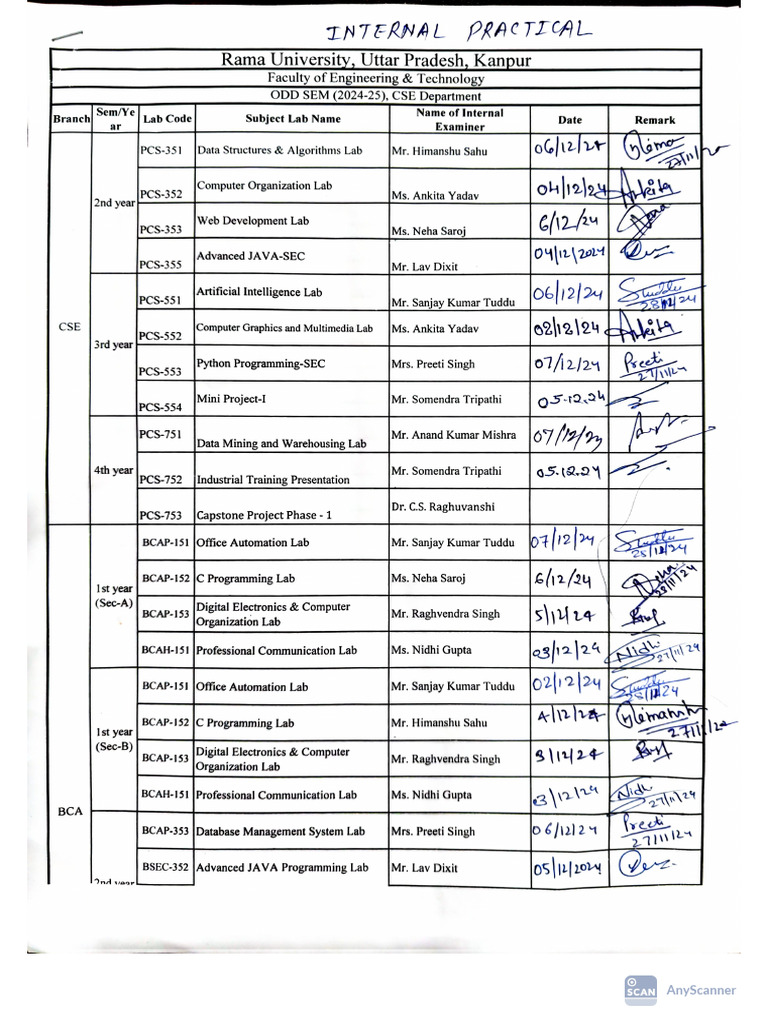 INTERNAL PRACTICAL
Rama University, Uttar Pradesh, Kanpur
Faculty of Engineering & Technology
ODD SEM (2024-25), CSE Department
Branch Sem/Ye ar Lab Code Subject Lab Name Name of Internal Examiner Date Remark
CSE
2nd year
PCS-351 Data Structures & Algorithms Lab Mr. Himanshu Sahu 06/12/24 27/11/24
PCS-352 Computer Organization Lab Ms. Ankita Yadav 04/12/24 Ankita
PCS-353 Web Development Lab Ms. Neha Saroj 6/12/24
PCS-355 Advanced JAVA-SEC Mr. Lav Dixit 04/12/2024
3rd year
PCS-551 Artificial Intelligence Lab Mr. Sanjay Kumar Tuddu 06/12/24
PCS-552 Computer Graphics and Multimedia Lab Ms. Ankita Yadav 02/12/24 Ankita
PCS-553 Python Programming-SEC Mrs. Preeti Singh 07/12/24 Preeti 27/11/24
PCS-554 Mini Project-I Mr. Somendra Tripathi 05.12.24
4th year
PCS-751 Data Mining and Warehousing Lab Mr. Anand Kumar Mishra 07/12/24
PCS-752 Industrial Training Presentation Mr. Somendra Tripathi 05.12.24
PCS-753 Capstone Project Phase - 1 Dr. C.S. Raghuvanshi
BCA
1st year (Sec-A)
BCAP-151 Office Automation Lab Mr. Sanjay Kumar Tuddu 07/12/24
BCAP-152 C Programming Lab Ms. Neha Saroj 6/12/24 Neha
BCAP-153 Digital Electronics & Computer Organization Lab Mr. Raghvendra Singh 5/12/24
BCAH-151 Professional Communication Lab Ms. Nidhi Gupta 03/12/24 Nidhi 27/11/24
1st year (Sec-B)
BCAP-151 Office Automation Lab Mr. Sanjay Kumar Tuddu 02/12/24
BCAP-152 C Programming Lab Mr. Himanshu Sahu 4/12/24 Himanshu 27/11/24
BCAP-153 Digital Electronics & Computer Organization Lab Mr. Raghvendra Singh 3/12/24
BCAH-151 Professional Communication Lab Ms. Nidhi Gupta 03/12/24 Nidhi 27/11/24
2nd year
BCAP-353 Database Management System Lab Mrs. Preeti Singh 06/12/24 Preeti 27/11/24
BSEC-352 Advanced JAVA Programming Lab Mr. Lav Dixit 05/12/2024
SCAN AnyScanner